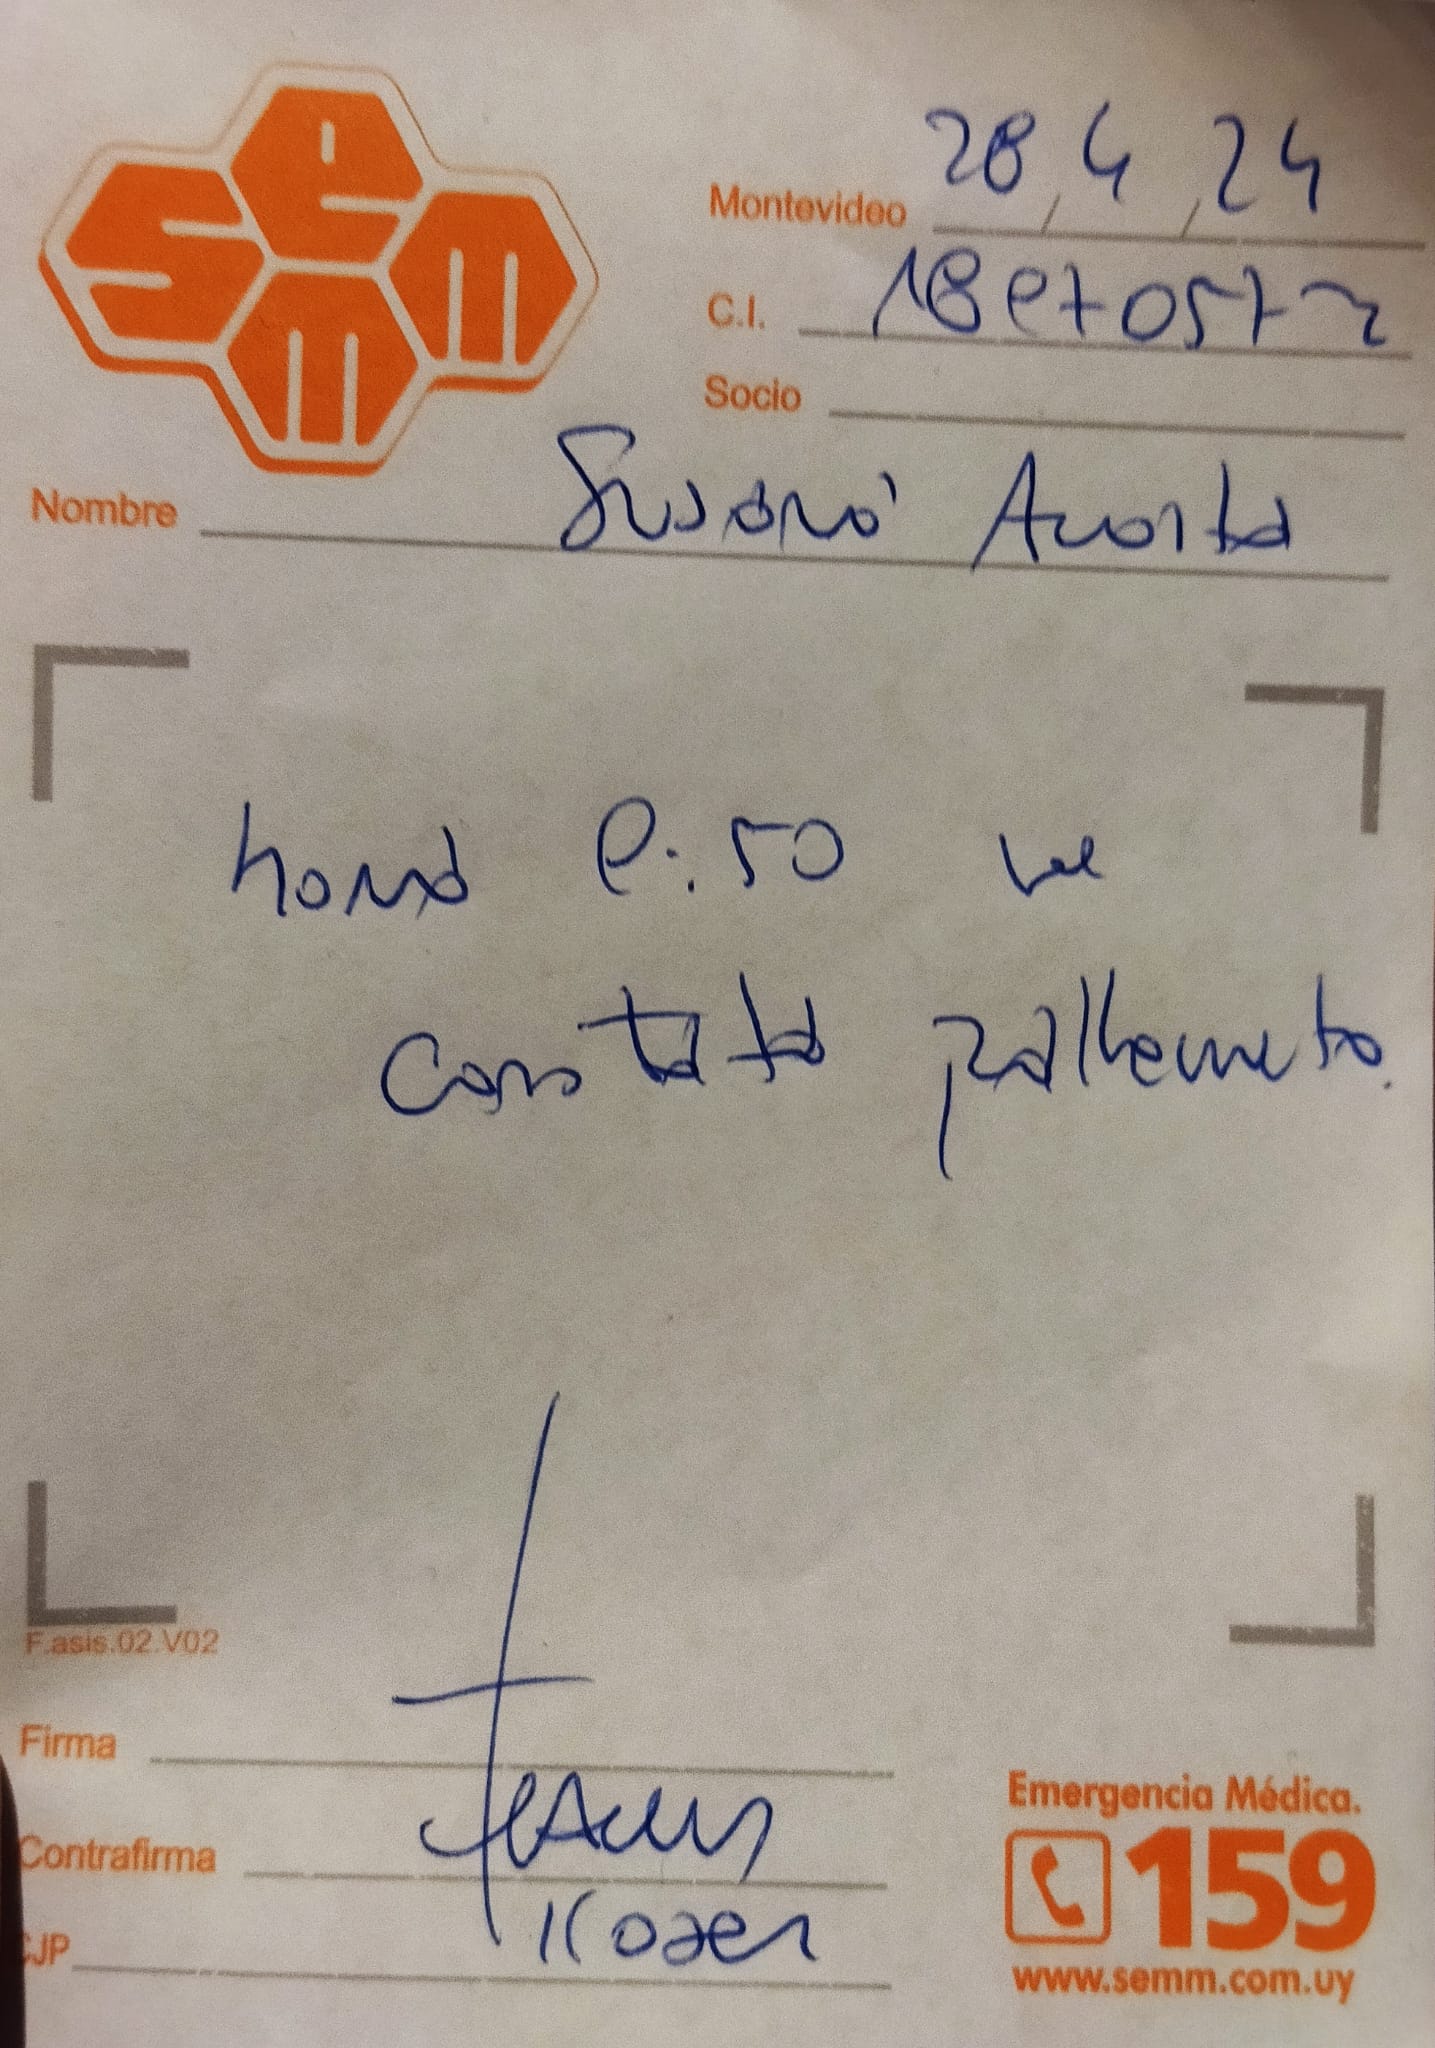 semm
Montevideo 28/4/24
C.I. 1897057-2
Socio
Nombre Susana Acosta
hora 9:50 se
constata fallecimiento.
F.asis.02.V02
Firma
Contrafirma
CJP
Emergencia Médica.
159
www.semm.com.uy